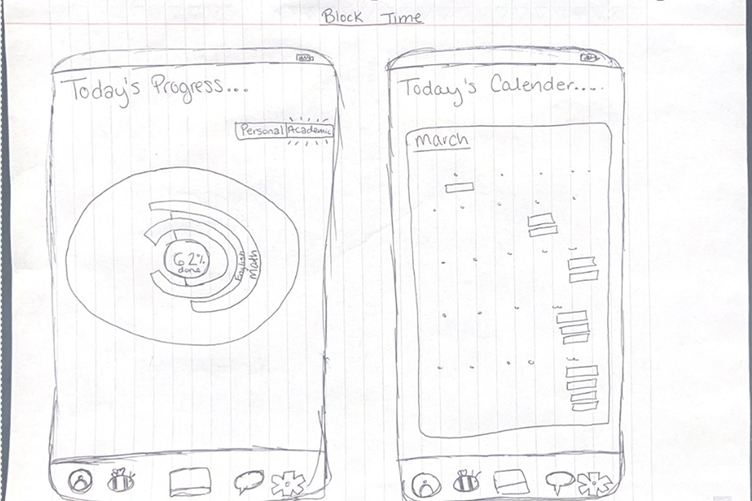 Block Time
Today's Progress...
Personal Academic
62%
done
English
Math
Today's Calender....
March